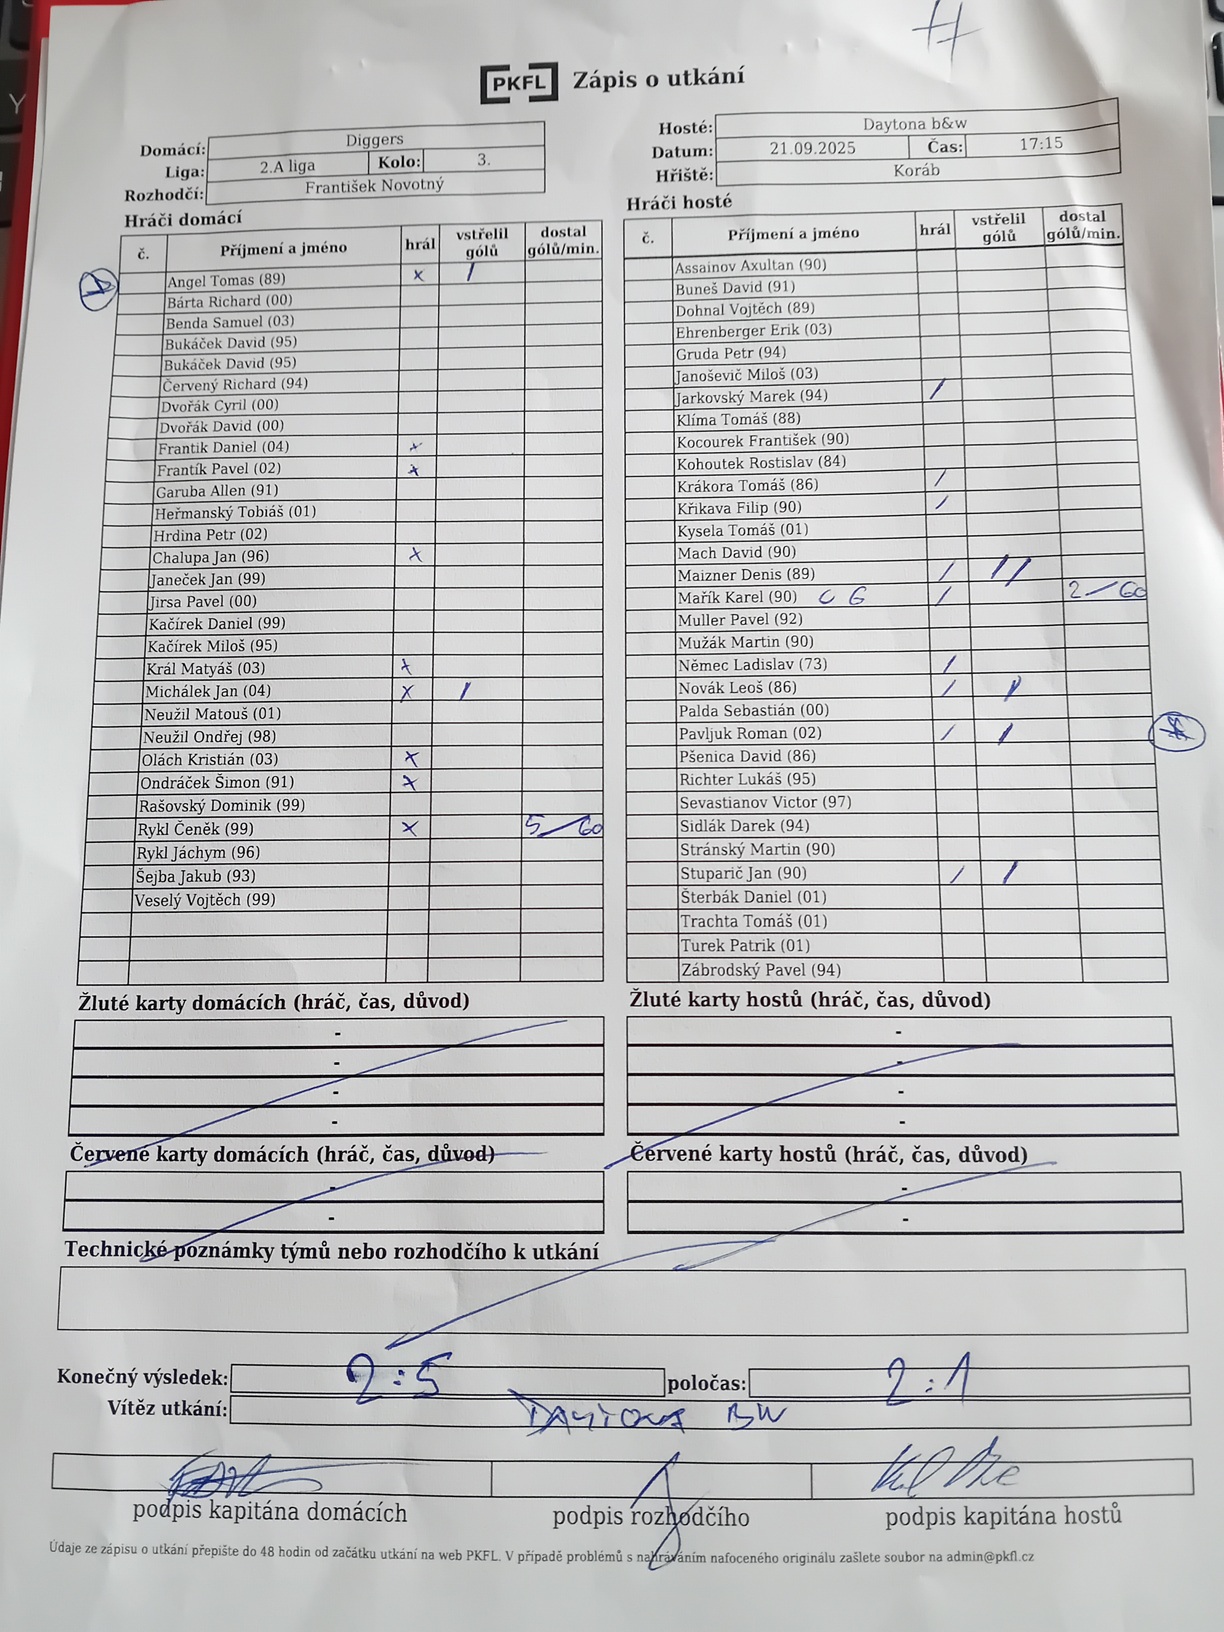 PKFL Zápis o utkání
Domácí: Diggers
Liga: 2.A liga Kolo: 3.
Rozhodčí: František Novotný
Hosté: Daytona b&w
Datum: 21.09.2025 Čas: 17:15
Hřiště: Koráb
Hráči domácí
č. Příjmení a jméno hrál vstřelil gólů dostal gólů/min.
Angel Tomas (89) x /
Bárta Richard (00)
Benda Samuel (03)
Bukáček David (95)
Bukáček David (95)
Červený Richard (94)
Dvořák Cyril (00)
Dvořák David (00)
Frantik Daniel (04) x
Frantík Pavel (02) x
Garuba Allen (91)
Heřmanský Tobiáš (01)
Hrdina Petr (02)
Chalupa Jan (96) x
Janeček Jan (99)
Jirsa Pavel (00)
Kačírek Daniel (99)
Kačírek Miloš (95)
Král Matyáš (03) x
Michálek Jan (04) x /
Neužil Matouš (01)
Neužil Ondřej (98)
Olách Kristián (03) x
Ondráček Šimon (91) x
Rašovský Dominik (99)
Rykl Čeněk (99) x 5/60
Rykl Jáchym (96)
Šejba Jakub (93)
Veselý Vojtěch (99)
Hráči hosté
č. Příjmení a jméno hrál vstřelil gólů dostal gólů/min.
Assainov Axultan (90)
Buneš David (91)
Dohnal Vojtěch (89)
Ehrenberger Erik (03)
Gruda Petr (94)
Janoševič Miloš (03)
Jarkovský Marek (94) /
Klíma Tomáš (88)
Kocourek František (90)
Kohoutek Rostislav (84)
Krákora Tomáš (86) /
Křikava Filip (90) /
Kysela Tomáš (01)
Mach David (90)
Maizner Denis (89) / //
Mařík Karel (90) C G / 2/60
Muller Pavel (92)
Mužák Martin (90)
Němec Ladislav (73) /
Novák Leoš (86) / /
Palda Sebastián (00)
Pavljuk Roman (02) / /
Pšenica David (86)
Richter Lukáš (95)
Sevastianov Victor (97)
Sidlák Darek (94)
Stránský Martin (90)
Stuparič Jan (90) / /
Šterbák Daniel (01)
Trachta Tomáš (01)
Turek Patrik (01)
Zábrodský Pavel (94)
Žluté karty domácích (hráč, čas, důvod)
-
-
-
-
Žluté karty hostů (hráč, čas, důvod)
-
-
-
-
Červené karty domácích (hráč, čas, důvod)
-
-
Červené karty hostů (hráč, čas, důvod)
-
-
Technické poznámky týmů nebo rozhodčího k utkání
Konečný výsledek: 2:5 poločas: 2:1
Vítěz utkání: DAYTONA BW
podpis kapitána domácích podpis rozhodčího podpis kapitána hostů
Údaje ze zápisu o utkání přepište do 48 hodin od začátku utkání na web PKFL. V případě problémů s nahráváním nafoceného originálu zašlete soubor na admin@pkfl.cz